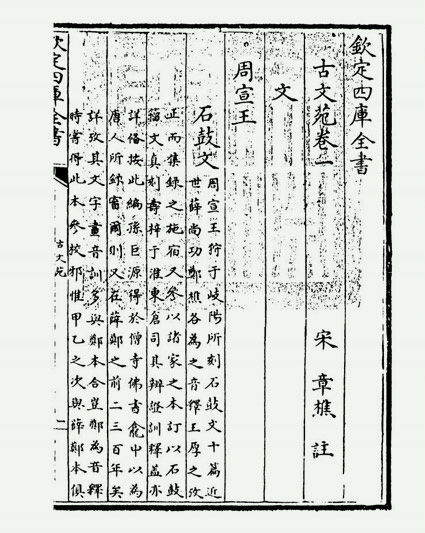 欽定四庫全書
古文苑卷一
宋 章樵 註
文
周宣王
石鼓文 周宣王狩于岐陽所刻石鼓文十篇近
世薛尚功鄭樵各為之音釋王厚之攷
正而集錄之施宿又參以諸家之本訂以石鼓
籀文真刻壽梓于淮東倉司其辨證訓釋葢亦
詳備按此編孫巨源得於僧寺佛書龕中以為
唐人所錄審爾則又在薛鄭之前二三百年矣
詳攷其文字畫音訓多與鄭本合豈鄭為音釋
時嘗得此本參挍邪惟甲乙之次與薛鄭本俱
欽定四庫全書
古文苑